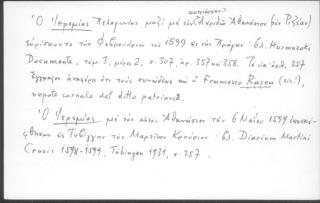 πατριάρχην?
Ὁ Ἱερεμίας Πελαγωνίας μαζὶ μὲ τὸν Ἀχρίδος Ἀθανάσιον (τὸν Ῥιζέαν)
εὑρίσκοντο τὸν Φεβρουάριον τοῦ 1599 εἰς τὴν Πράγαν· βλ. Hurmuzaki
Documente, τόμ. 3, μέρος 2, σ. 307, ἀρ. 357 καὶ 358. Τὸ ὑπ' ἀριθ. 357
ἔγγραφον ἀναφέρει ὅτι τοὺς συνόδευε καὶ ὁ Francesco Rassea (sic!),
nepote carnale del ditto patriarca.
Ὁ Ἱερεμίας μὲ τὸν αὐτὸν Ἀθανάσιον τὴν 6 Μαΐου 1599 ἐπεσκέ-
φθησαν εἰς Τυβίγγην τὸν Μαρτῖνον Κρούσιον· βλ. Diarium Martini
Crusii 1598-1599, Tübingen 1931, σ. 257.